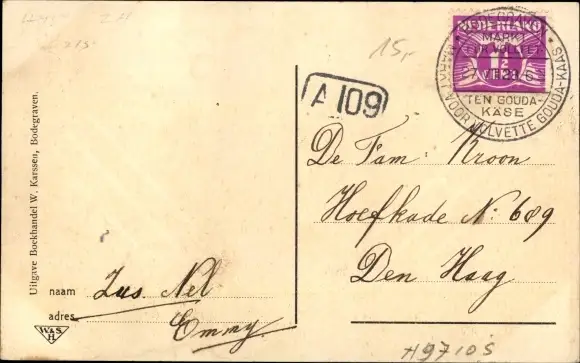 15,-
NEDERLAND
1½
CENT
MARKT VOOR VOLVETTE GOUDA-KAAS
TEN GOUDA-
KÄSE
A 109
De Fam: Kroon
Hoefkade No: 689
Den Haag
Uitgave Boekhandel W. Karssen, Bodegraven.
naam Zus. Nel
adres Emmy.
W&S
H
H9710S